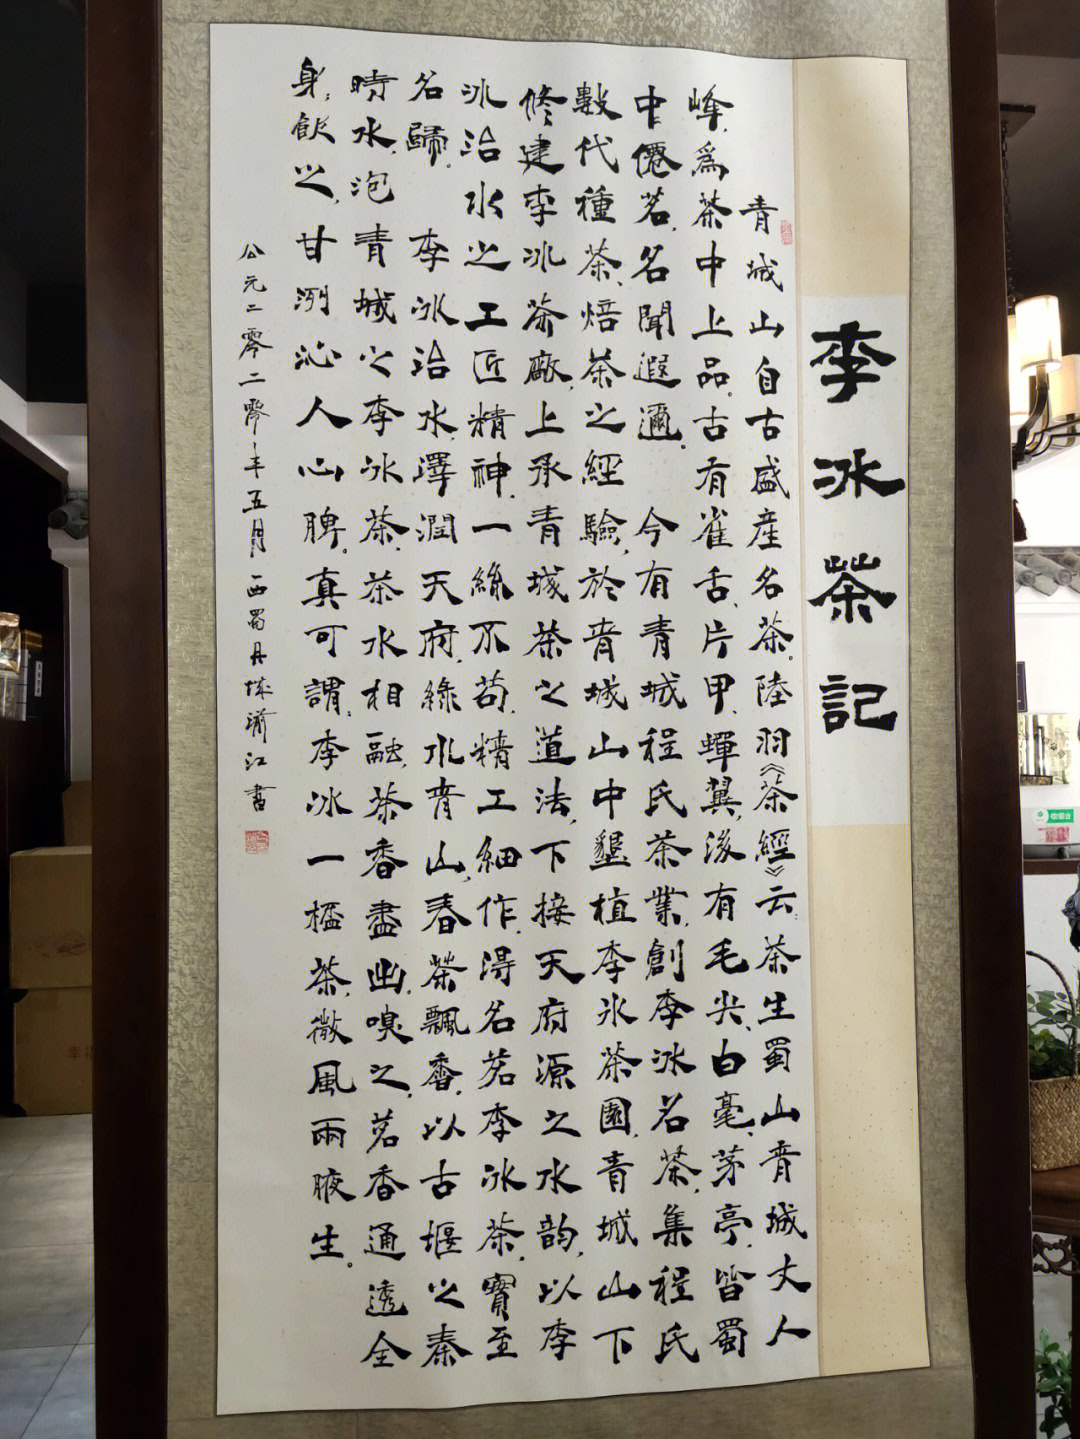 李冰茶記
青城山自古盛産名茶。陸羽《茶經》云：茶生蜀山青城丈人
峰，爲茶中上品。古有雀舌、片甲、蟬翼，後有毛尖、白毫、茅亭，皆蜀
中僊茗，名聞遐邇。 今有青城程氏茶業，創李冰名茶，集程氏
數代種茶、焙茶之經驗，於青城山中墾植李冰茶園，青城山下
修建李冰茶廠，上承青城茶之道法，下接天府源之水韵，以李
冰治水之工匠精神，一絲不苟，精工細作，得名茗李冰茶，實至
名歸。 李冰治水，澤潤天府，綠水青山，春茶飄香，以古堰之秦
時水，泡青城之李冰茶，茶水相融，茶香盡出，嗅之，茗香通透全
身，飲之，甘洌沁人心脾。真可謂：李冰一榼茶，微風兩腋生。
公元二零二零年五月西蜀丹 江書
收银台